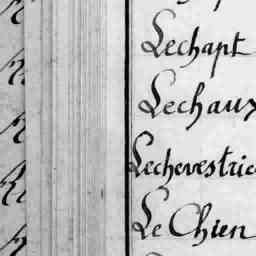 Lechapt
Lechaux
Lechevestric
Le Chien